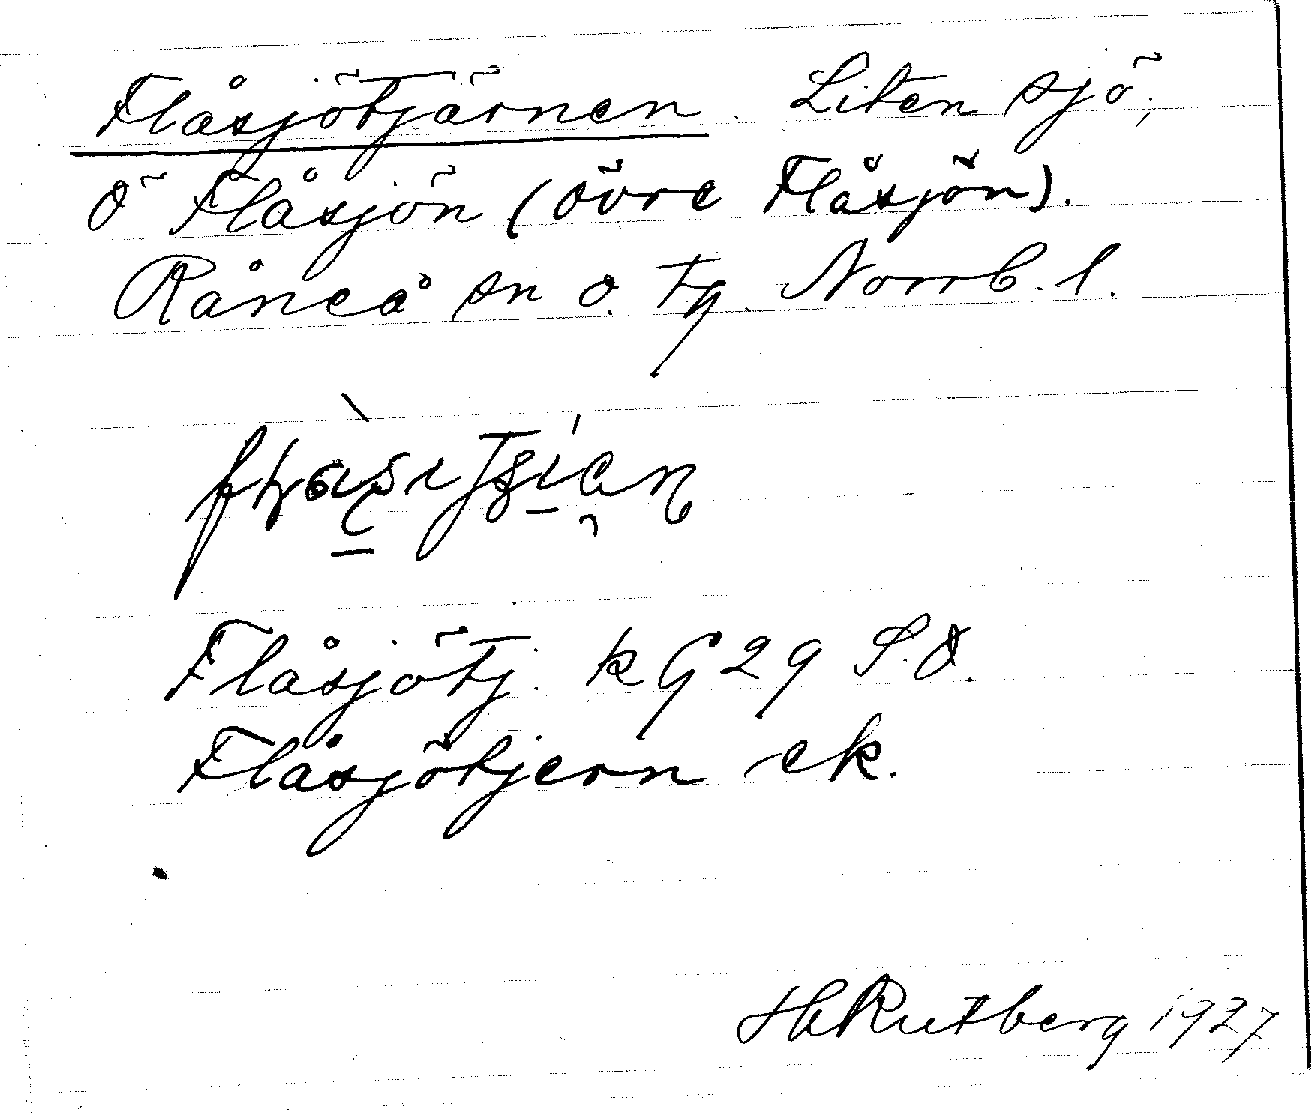 Flåsjötjärnen Liten sjö,
Ö Flåsjön (Övre Flåsjön).
Råneå sn o. tg Norrb. l.
Flåsjötj. k G 29 S.O.
Flåsjötjern ek.
H Rutberg 1927